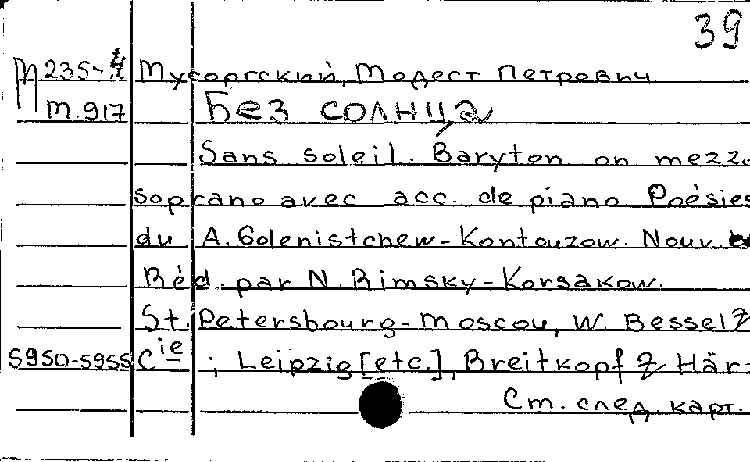 39
М 235-4 Мусоргский, Модест Петрович
м.917 Без солнца
Sans soleil. Baryton on mezzo
soprano avec acc. de piano Poésies
du A. Golenistchew-Kontouzow. Nouv.
Réd. par N. Rimsky-Korsakow.
St. Petersbourg-Moscou, W. Bessel &
5950-5955 Cie ; Leipzig [etc.], Breitkopf & Här-
См. след. карт.